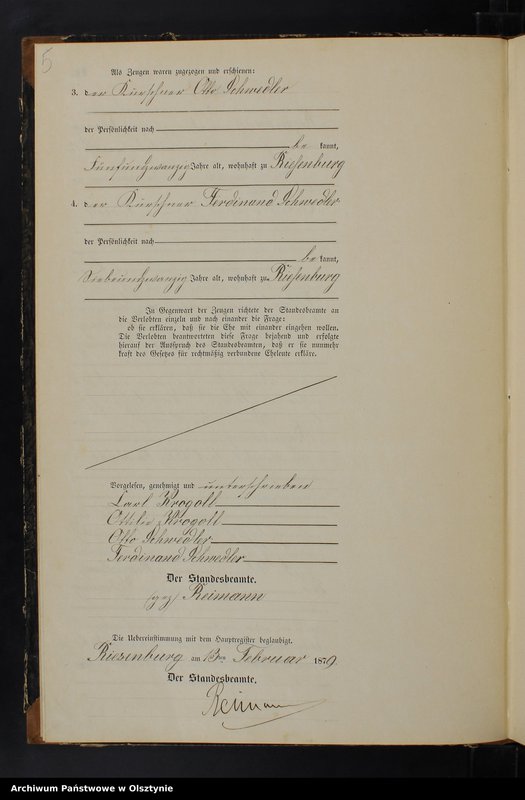 5
Als Zeugen waren zugezogen und erschienen:
3. der Kürschner Otto Schwedler
der Persönlichkeit nach
be kannt,
fünfundzwanzig Jahre alt, wohnhaft zu Riesenburg
4. der Kürschner Ferdinand Schwedler
der Persönlichkeit nach
be kannt,
siebenundzwanzig Jahre alt, wohnhaft zu Riesenburg
In Gegenwart der Zeugen richtete der Standesbeamte an
die Verlobten einzeln und nach einander die Frage:
ob sie erklären, daß sie die Ehe mit einander eingehen wollen.
Die Verlobten beantworteten diese Frage bejahend und erfolgte
hierauf der Ausspruch des Standesbeamten, daß er sie nunmehr
kraft des Gesetzes für rechtmäßig verbundene Eheleute erkläre.
Vorgelesen, genehmigt und unterschrieben
Carl Krogoll
Ottilie Krogoll
Otto Schwedler
Ferdinand Schwedler
Der Standesbeamte.
(gez) Reimann
Die Uebereinstimmung mit dem Hauptregister beglaubigt.
Riesenburg am 13ten Februar 1879.
Der Standesbeamte.
Reimann
Archiwum Państwowe w Olsztynie